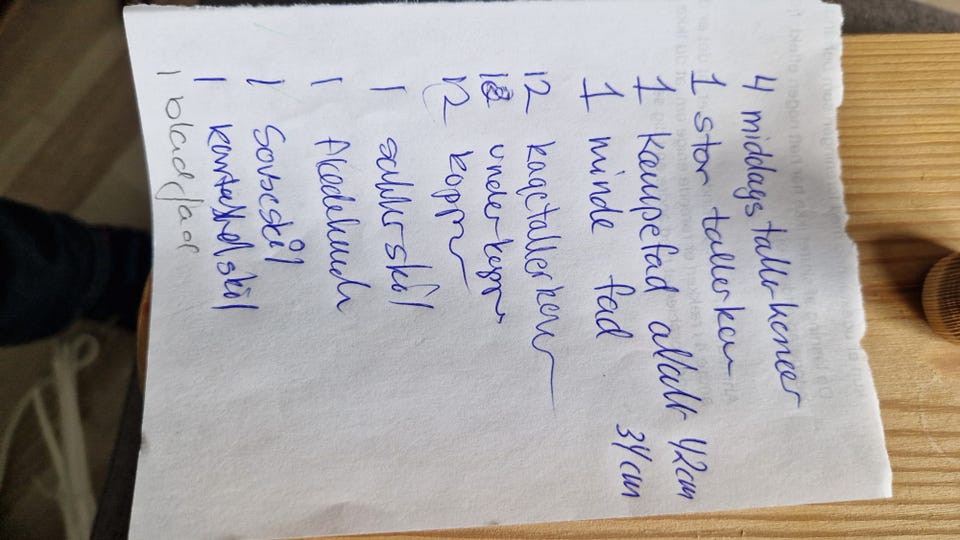 4 middagstallerkener
1 stor tallerken
1 kæmpefad ovalt 42cm
1 mindre fad 34cm
12 kagetallerkener
12 underkopper
12 kopper
1 sukkerskål
1 flødekande
1 Sovseskål
1 kartoffelskål
1 bladfad